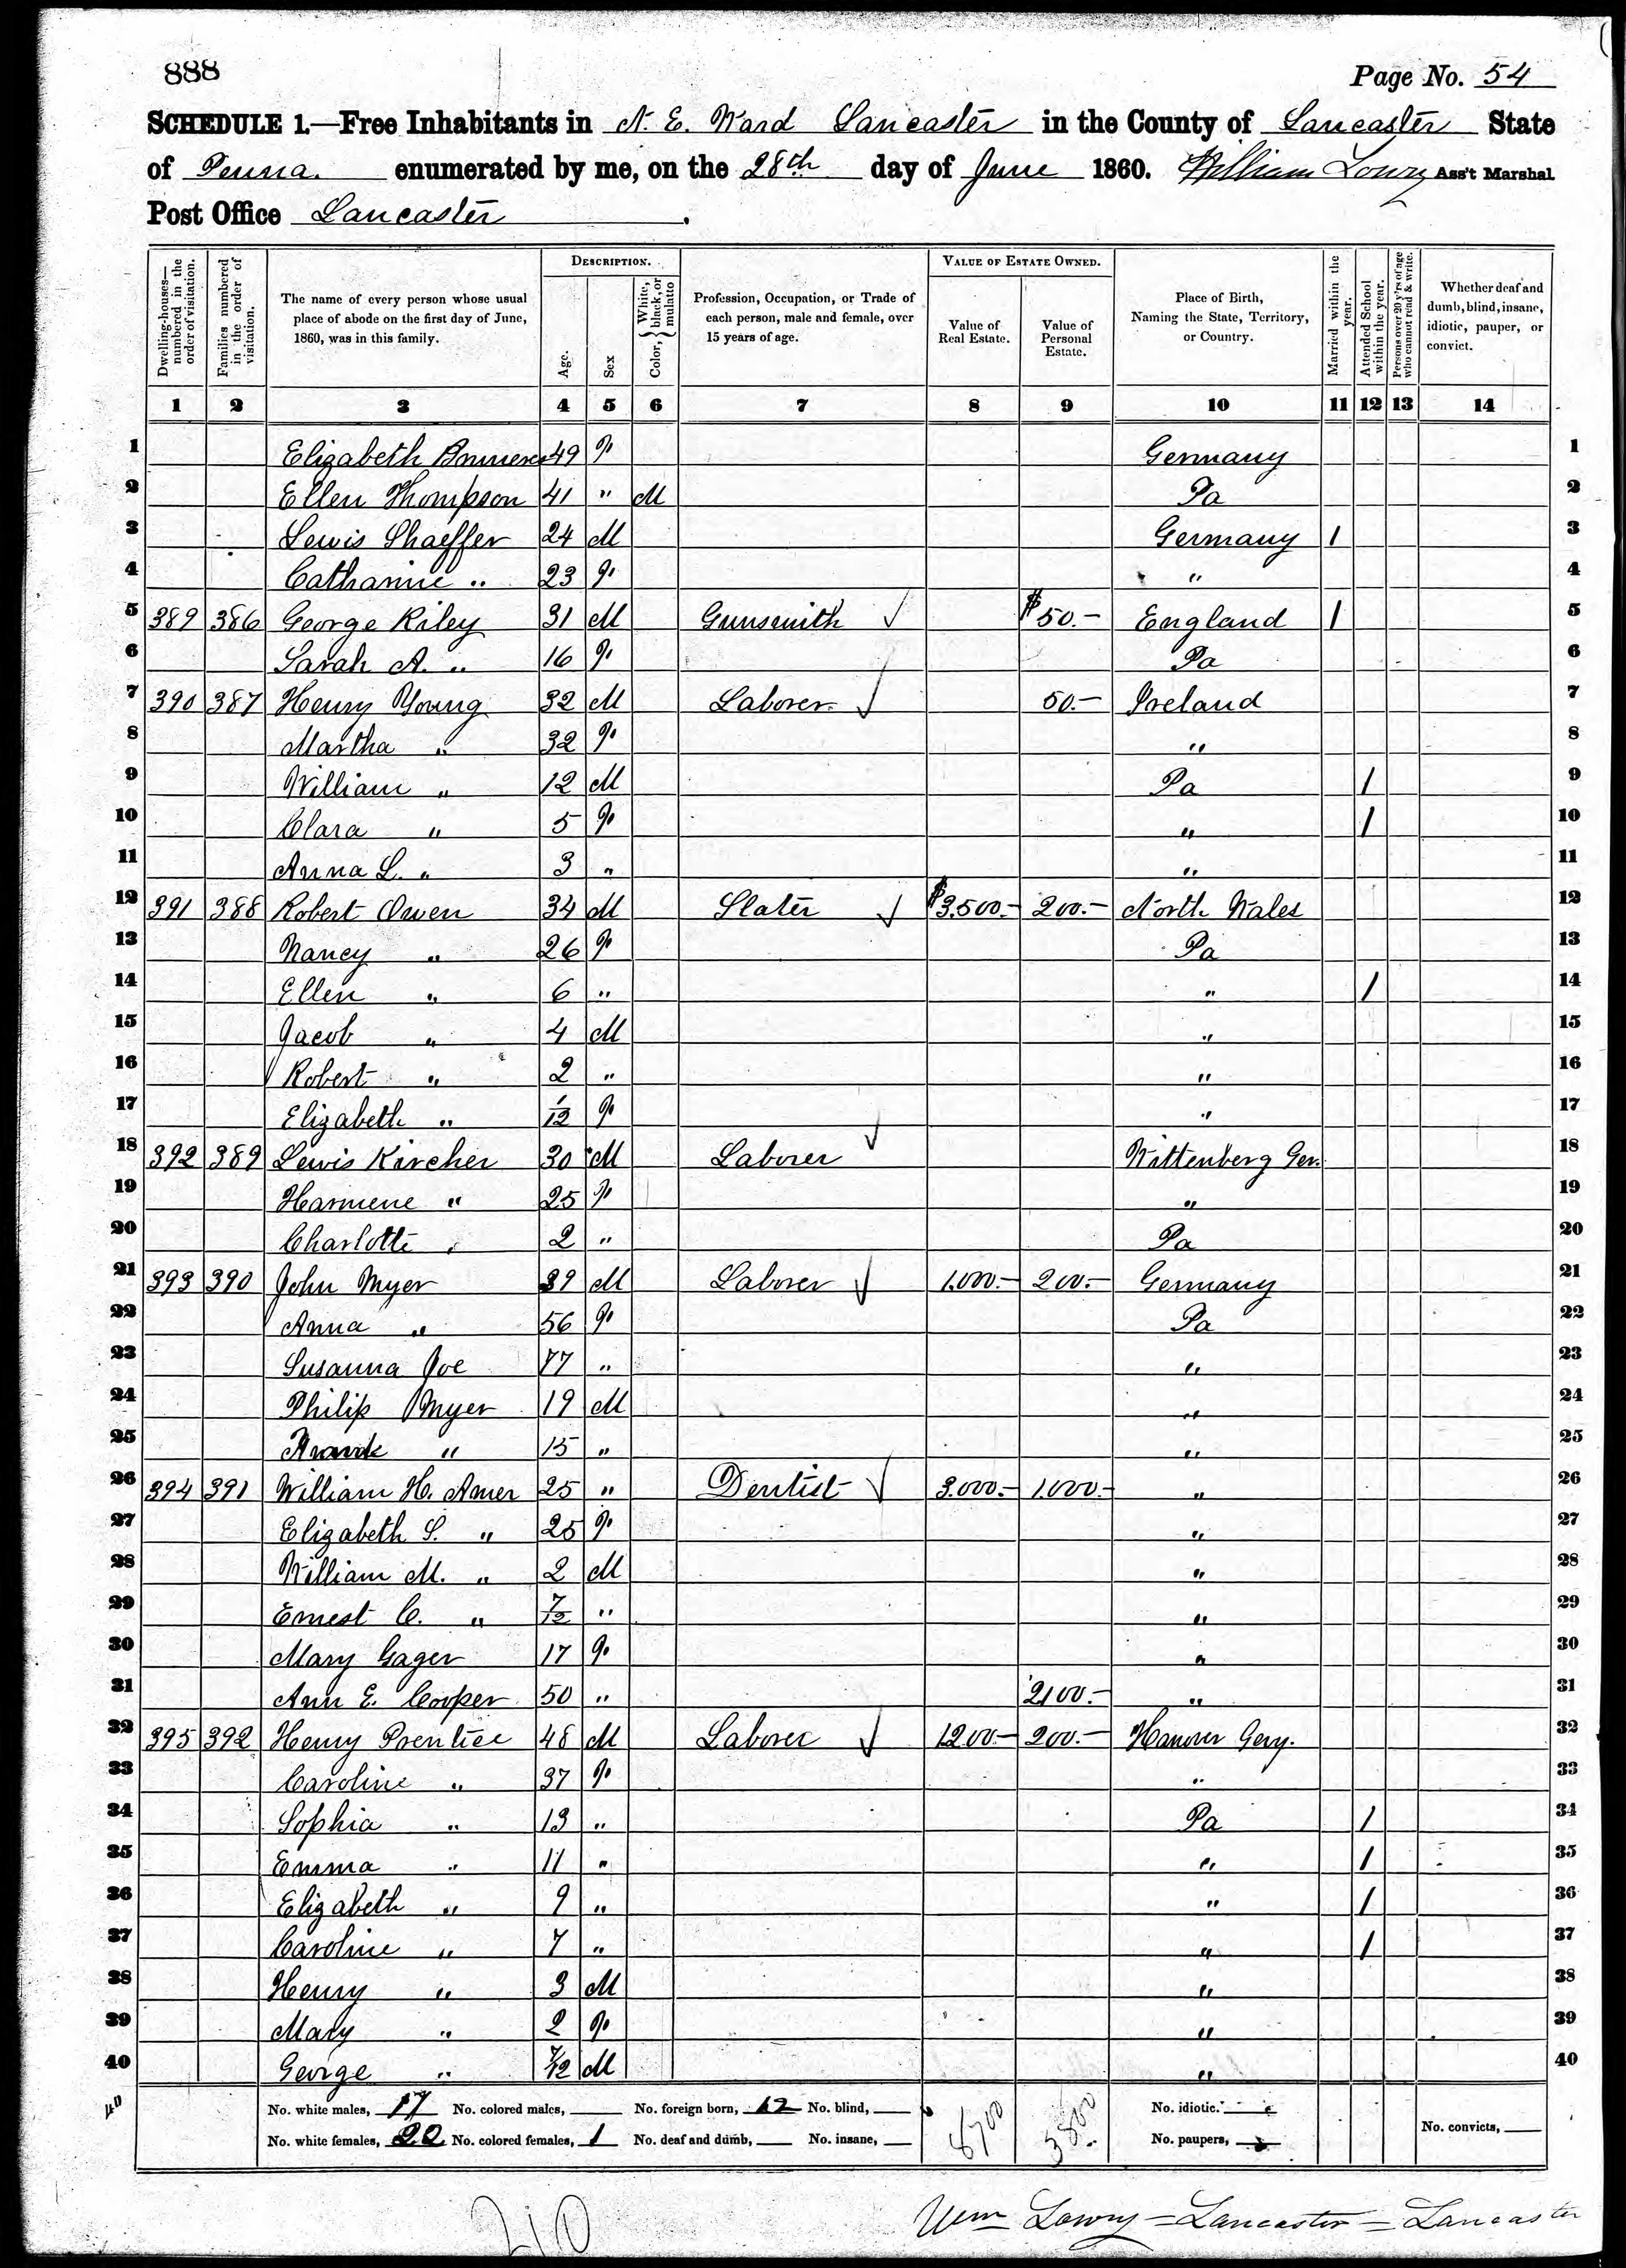 888
Page No. 54
SCHEDULE 1.—Free Inhabitants in N. E. Ward Lancaster in the County of Lancaster State
of Penna. enumerated by me, on the 28th day of June 1860. William Lowry Ass't Marshal
Post Office Lancaster.
Dwelling-houses—numbered in the order of visitation. Families numbered in the order of visitation. The name of every person whose usual place of abode on the first day of June, 1860, was in this family. DESCRIPTION. Age. Sex Color, { White, black, or mulatto Profession, Occupation, or Trade of each person, male and female, over 15 years of age. VALUE OF ESTATE OWNED. Value of Real Estate. Value of Personal Estate. Place of Birth, Naming the State, Territory, or Country. Married within the year. Attended School within the year. Persons over 20 y'rs of age who cannot read & write. Whether deaf and dumb, blind, insane, idiotic, pauper, or convict.
1 2 3 4 5 6 7 8 9 10 11 12 13 14
1 Elizabeth 49 F Germany 1
2 Ellen Thompson 41 " M Pa 2
3 Lewis Shaeffer 24 M Germany / 3
4 Catharine " 23 F " 4
5 389 386 George Riley 31 M Gunsmith $50.- England / 5
6 Sarah A. " 16 F Pa 6
7 390 387 Henry Young 32 M Laborer 50.- Ireland 7
8 Martha " 32 F " 8
9 William " 12 M Pa / 9
10 Clara " 5 F " / 10
11 Anna L. " 3 " " 11
12 391 388 Robert Owen 34 M Slater $3,500.- 200.- North Wales 12
13 Nancy " 26 F Pa 13
14 Ellen " 6 " " / 14
15 Jacob " 4 M " 15
16 Robert " 2 " " 16
17 Elizabeth " 1/12 F " 17
18 392 389 Lewis Kircher 30 M Laborer Wittenberg Ger. 18
19 Harmene " 25 F " 19
20 Charlotte " 2 " Pa 20
21 393 390 John Myer 39 M Laborer 1,000.- 200.- Germany 21
22 Anna " 56 F Pa 22
23 Susanna Joe 77 " " 23
24 Philip Myer 19 M " 24
25 " 15 " " 25
26 394 391 William H. Amer 25 " Dentist 3.000.- 1.000.- " 26
27 Elizabeth S. " 25 F " 27
28 William M. " 2 M " 28
29 Ernest C. " 7/12 " " 29
30 Mary Gager 17 F " 30
31 Ann E. Cooper 50 " 2100.- " 31
32 395 392 Henry Prentice 48 M Laborer 1200.- 200.- Hanover Gery. 32
33 Caroline " 37 F " 33
34 Sophia " 13 " Pa / 34
35 Emma " 11 " " / 35
36 Elizabeth " 9 " " / 36
37 Caroline " 7 " " / 37
38 Henry " 3 M " 38
39 Mary " 2 F " 39
40 George " 7/12 M " 40
40 No. white males, 17 No. colored males, No. foreign born, 12 No. blind, 8700 3800 No. idiotic.
No. white females, 22 No. colored females, 1 No. deaf and dumb, No. insane, No. paupers, No. convicts,
210 Wm Lowry = Lancaster = Lancaster